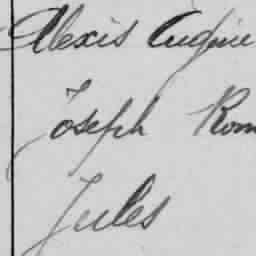 Alexis Eugène
Joseph Rom
Jules